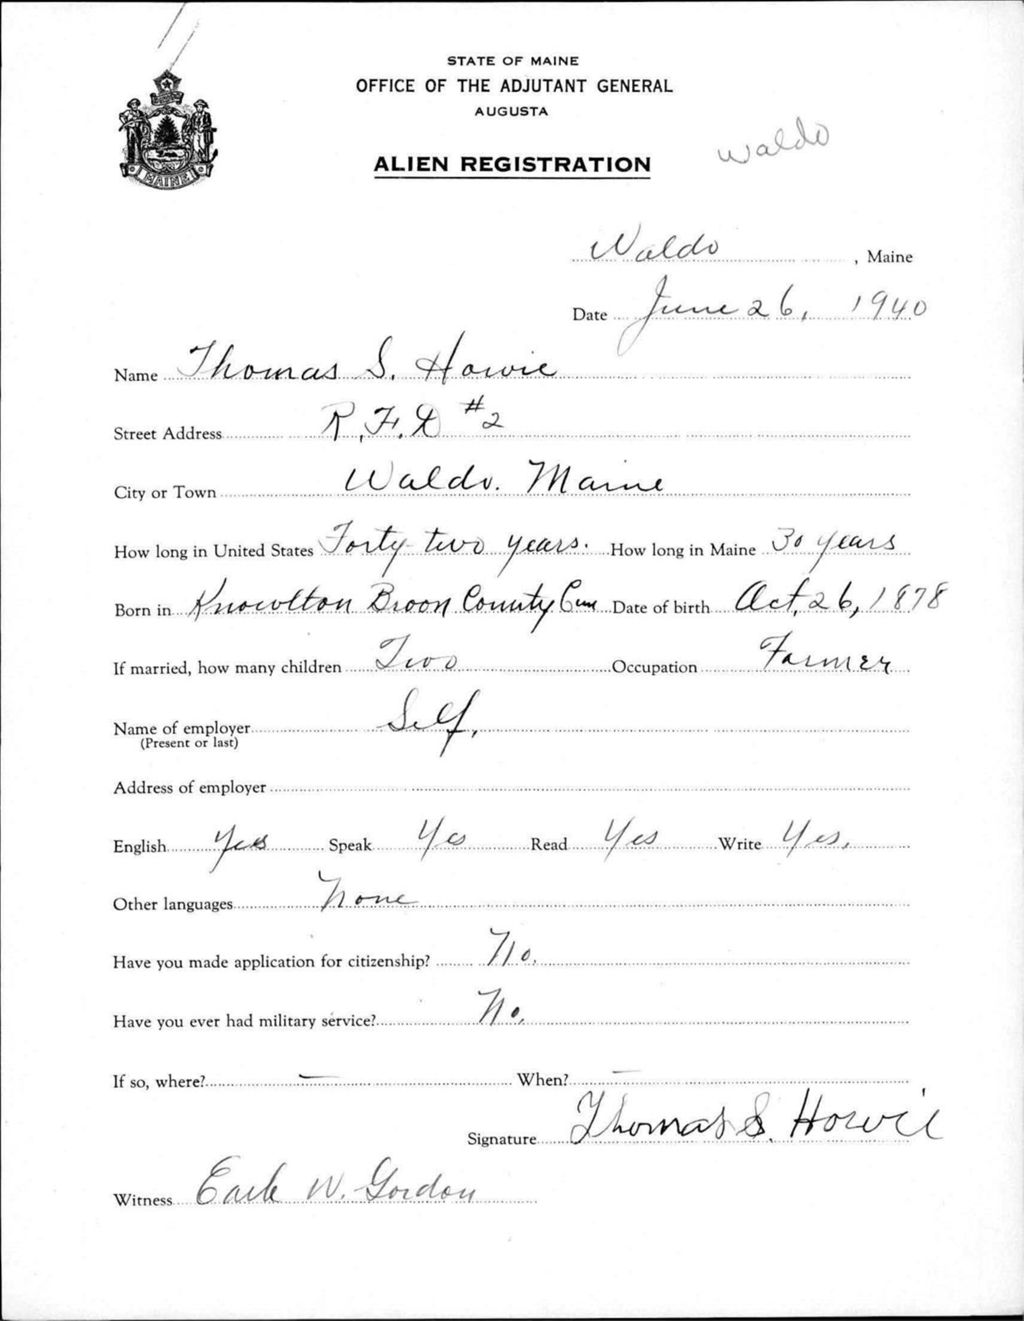 STATE OF MAINE
OFFICE OF THE ADJUTANT GENERAL
AUGUSTA
ALIEN REGISTRATION
Waldo
MAINE
Waldo, Maine
Date June 26, 1940
Name Thomas S. Howie
Street Address R.F.D #2
City or Town Waldo. Maine
How long in United States Forty two years. How long in Maine 30 years
Born in Knowlton Broom County Can Date of birth Oct, 26, 1878
If married, how many children Two Occupation Farmer
Name of employer Self,
(Present or last)
Address of employer
English Yes Speak Yes Read Yes Write Yes,
Other languages None
Have you made application for citizenship? No.
Have you ever had military service? No,
If so, where? — When? —
Signature Thomas S. Howie
Witness Earle W. Gordon